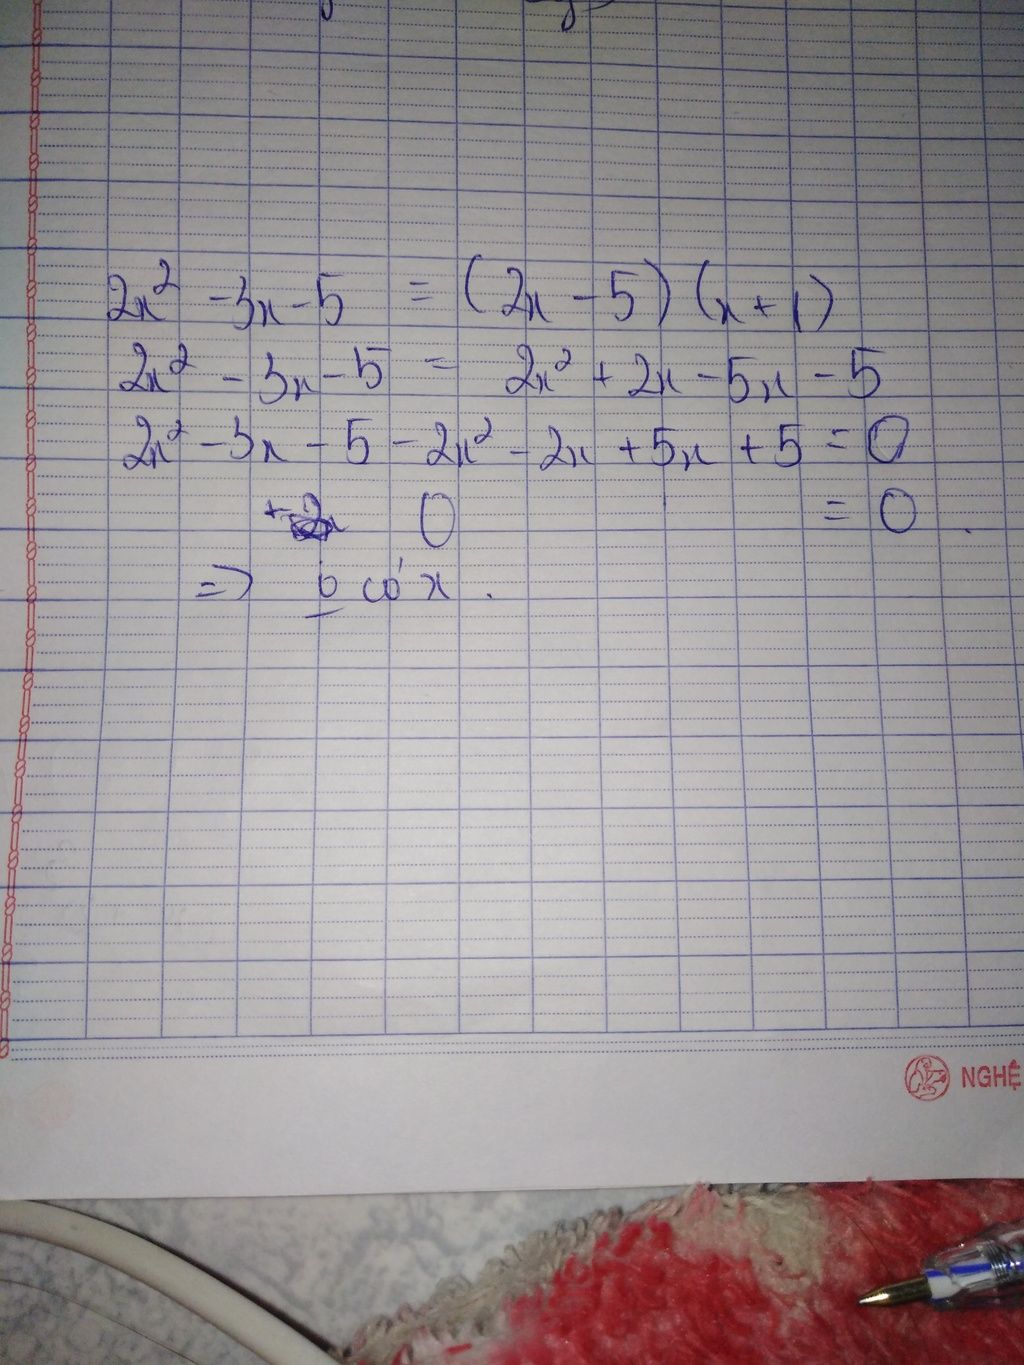 2x² - 3x - 5 = (2x - 5)(x + 1)
2x² - 3x - 5 = 2x² + 2x - 5x - 5
2x² - 3x - 5 - 2x² - 2x + 5x + 5 = 0
0 = 0.
=> có x.
NGHỆ